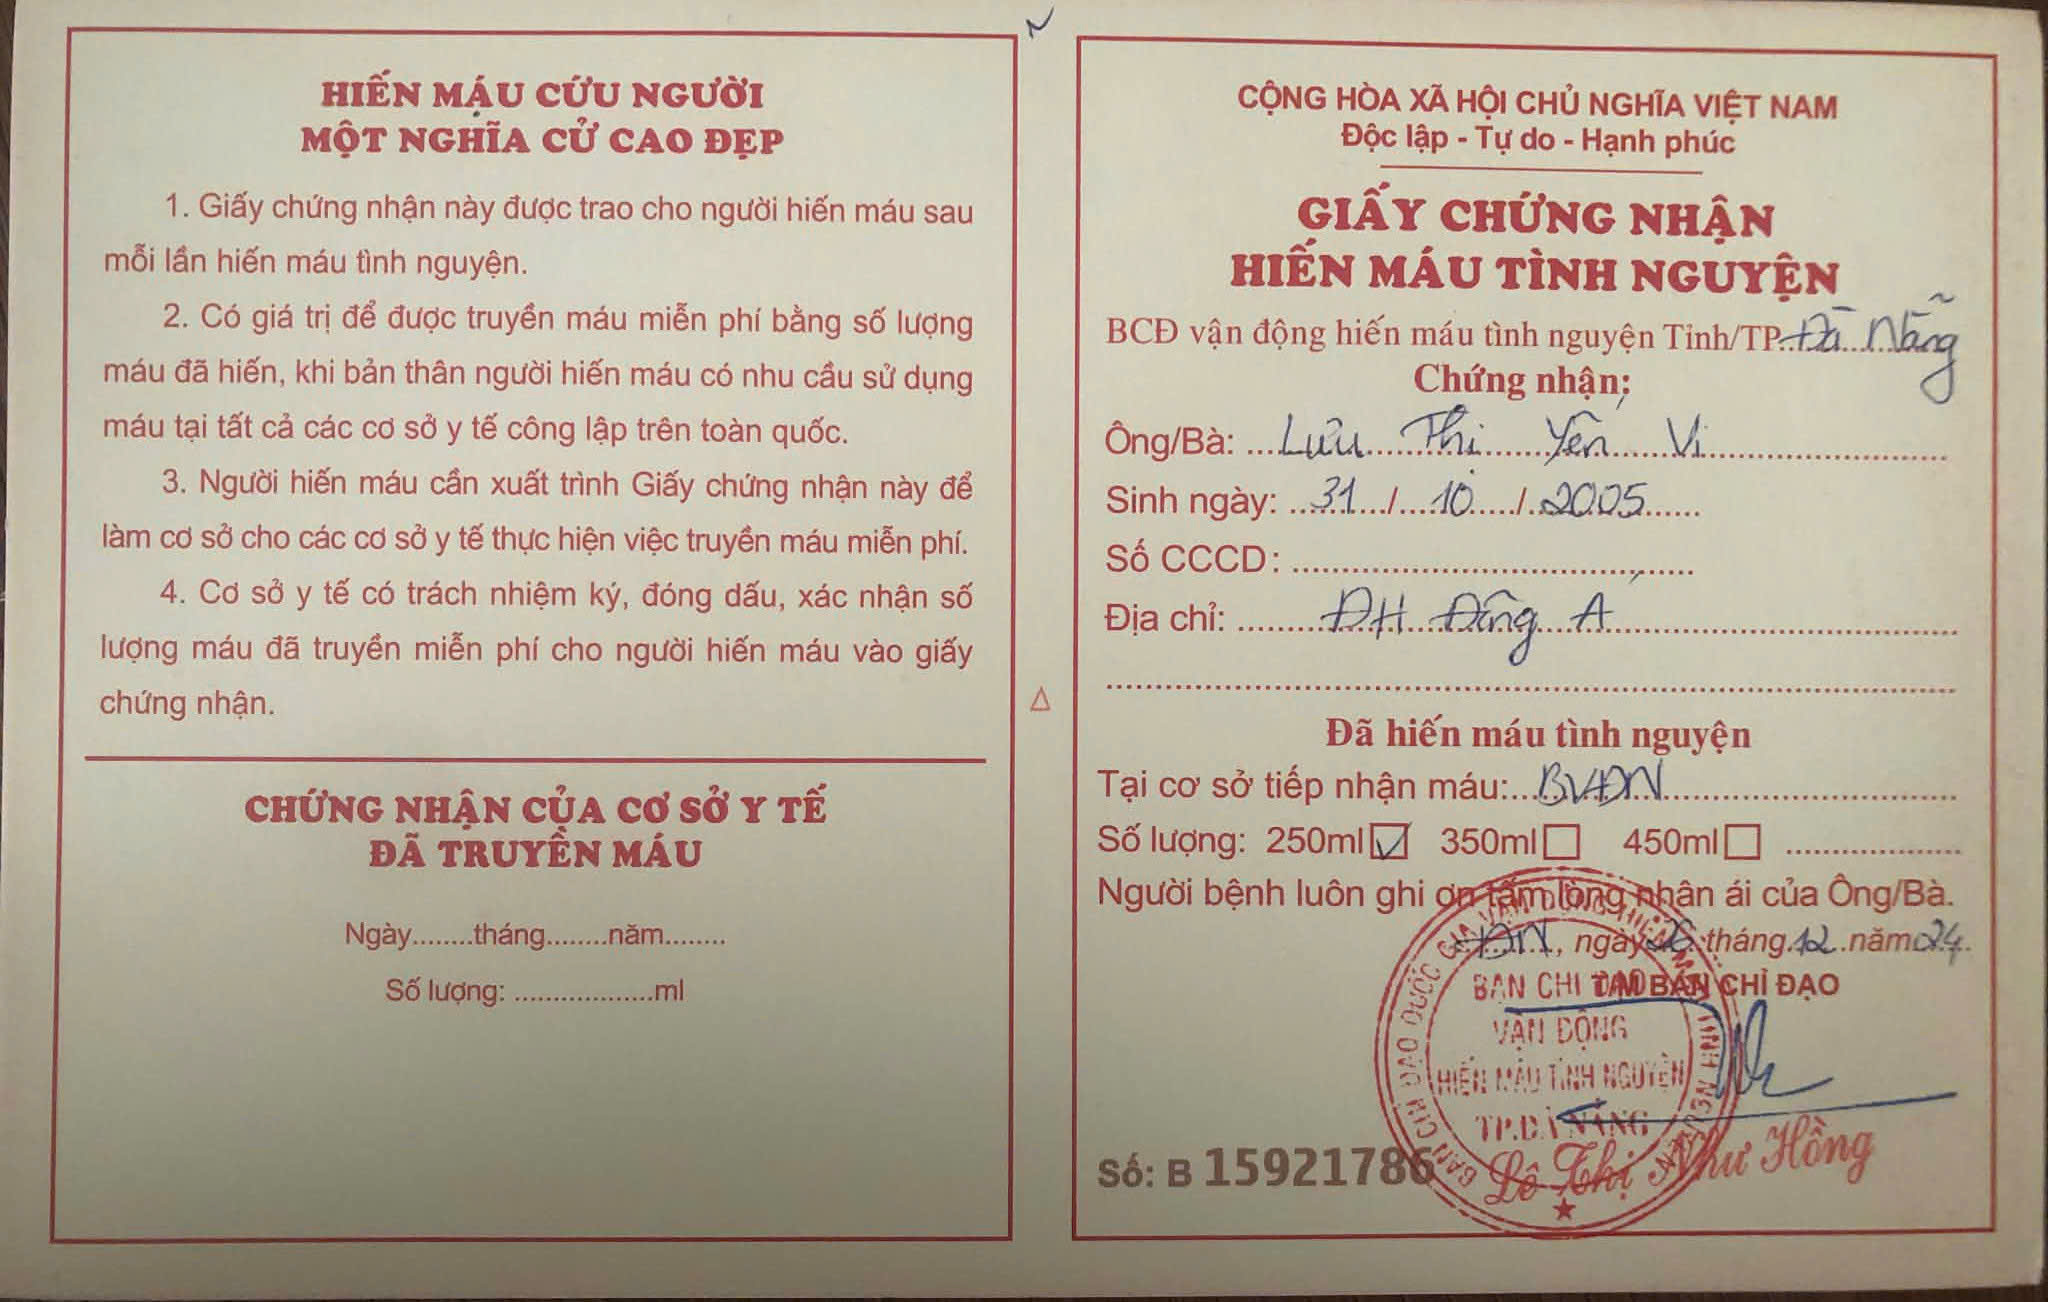 HIẾN MÁU CỨU NGƯỜI
MỘT NGHĨA CỬ CAO ĐẸP
1. Giấy chứng nhận này được trao cho người hiến máu sau
mỗi lần hiến máu tình nguyện.
2. Có giá trị để được truyền máu miễn phí bằng số lượng
máu đã hiến, khi bản thân người hiến máu có nhu cầu sử dụng
máu tại tất cả các cơ sở y tế công lập trên toàn quốc.
3. Người hiến máu cần xuất trình Giấy chứng nhận này để
làm cơ sở cho các cơ sở y tế thực hiện việc truyền máu miễn phí.
4. Cơ sở y tế có trách nhiệm ký, đóng dấu, xác nhận số
lượng máu đã truyền miễn phí cho người hiến máu vào giấy
chứng nhận.
CHỨNG NHẬN CỦA CƠ SỞ Y TẾ
ĐÃ TRUYỀN MÁU
Ngày........tháng........năm........
Số lượng: ...................ml
CỘNG HÒA XÃ HỘI CHỦ NGHĨA VIỆT NAM
Độc lập - Tự do - Hạnh phúc
GIẤY CHỨNG NHẬN
HIẾN MÁU TÌNH NGUYỆN
BCĐ vận động hiến máu tình nguyện Tỉnh/TP Đà Nẵng
Chứng nhận:
Ông/Bà: Lưu Thị Yến Vi
Sinh ngày: 31 / 10 / 2005
Số CCCD:
Địa chỉ: ĐH Đông Á
Đã hiến máu tình nguyện
Tại cơ sở tiếp nhận máu: BVĐN
Số lượng: 250ml ☑ 350ml ☐ 450ml ☐
Người bệnh luôn ghi ơn tấm lòng nhân ái của Ông/Bà.
ĐN, ngày 26 tháng 12 năm 24
T/M BAN CHỈ ĐẠO
BAN CHỈ ĐẠO
VẬN ĐỘNG
HIẾN MÁU TÌNH NGUYỆN
TP.ĐÀ NẴNG
Số: B 15921786
Lê Thị Như Hồng